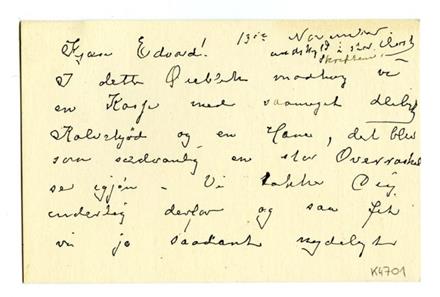 13de November
Kjære Edvard!
undskyld i stor Hast
skreften!
I dette Øieblik modtog vi
en Kasse med saameget deiligt
Kalvekjød og en Hane, det blev
som sædvanlig en stor Overraskel
se igjen – Vi takke Dig
inderlig derfor og saa fik
vi jo saadant nydeligt
K4701